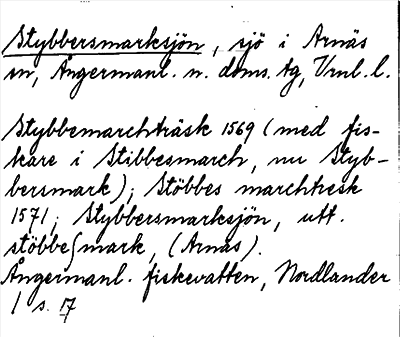 Stybbersmarksjön, sjö i Arnäs
sn, Ångermanl. n. doms. tg, Vrnl. l.
Stybbemarchträsk 1569 (med fis-
kare i Stibbesmarch, nu Styb-
bersmark); Stöbbes marchtresk
1571; Stybbersmarksjön, utt.
stöbbesmark, (Arnäs).
Ångermanl. fiskevatten, Nordlander
1 s. 17